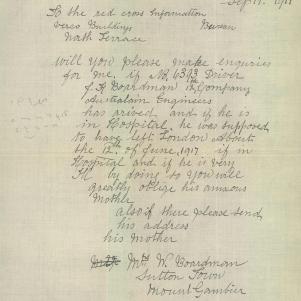 Sep 17. 1917
To the red cross Information
Verco Buildings Bureau
North Terrace
Will you Please make enquries
for me. if No 6393 Driver
J. H Boardman 12th Company
Australain Engineers
has arived and if he is
in Hospital. he was supposed
to have left London about
the 12th of June, 1917 if in
Hospital and if he is very
Ill by doing so you will
greatly oblige his anxious
Mother
also if there Please send
his address
his Mother
Mrs W. Boardman
Sutton Town
Mount Gambier